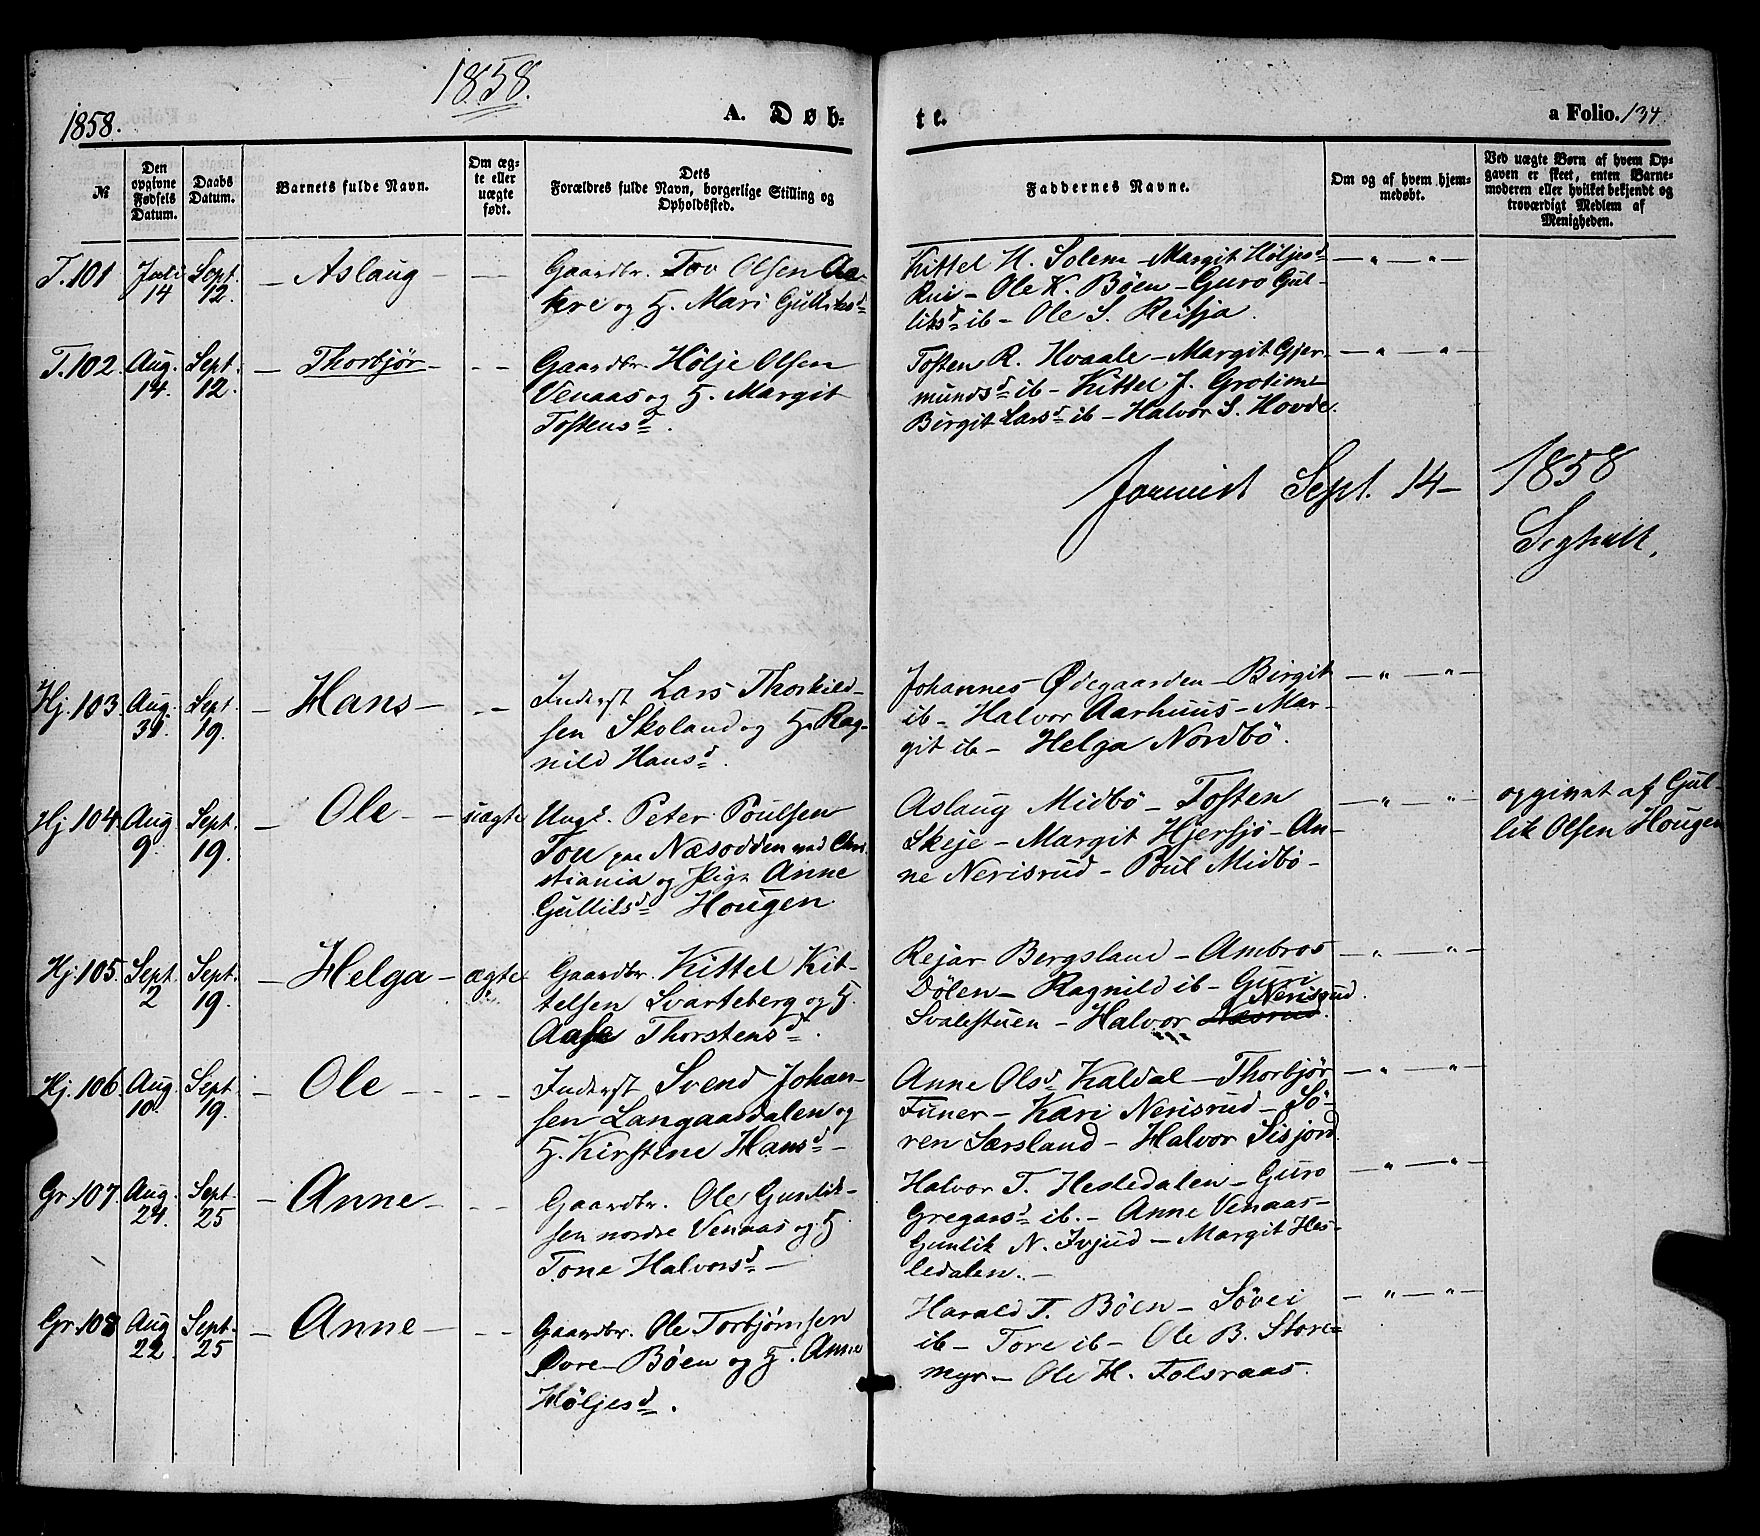 1858.
1858.
A. Døb-
te.
a Folio. 134
№
Den opgivne Fødsels Datum.
Daabs Datum.
Barnets fulde Navn.
Om ægte eller uægte født.
Dets Forældres fulde Navn, borgerlige Stilling og Opholdssted.
Faddernes Navne.
Om og af hvem hjemmedøbt.
Ved uægte Børn af hvem Opgaven er skeet, enten Barnemoderen eller hvilket bekjendt og troværdigt Medlem af Menigheden.
T. 101 Juli 14 Sept. 12. – Aslaug – – –
Gaardbr. Tov Olsen Aa-
kre og H. Mari Gulliksd
Kittel H. Solem – Margit Høljesd
Rui – Ole K. Böen – Guro Gul-
liksd ib – Ole S. Reisja.
– " – " –
T. 102. Aug. 14. Sept. 12. – Thorbjør – – –
Gaardbr. Hölje Olsen
Venaas og H. Margit
Tostensd.
Tosten R. Hvaale – Margit Gjer-
mundsd ib – Kittel J. Grotim
Birgit Larsd ib – Halvor S. Hovde.
– " – " –
Sept. 14 – 1858
Hj. 103. Aug. 31. Sept. 19. – Hans – – –
Inderst Lars Thorkild-
sen Skoland og H. Rag-
nild Hansd.
Johannes Ødegaarden – Birgit
ib – Halvor Aarhuus – Mar-
git ib – Helga Nordbö.
– " – " –
Hj. 104. Aug 9. Sept. 19. – Ole – uægte
Ungk. Peter Poulsen
Tou paa Næsodden ved Chri-
stiania og Pige Anne
Gulliksd Hougen
Aslaug Midbö – Tosten
Skeje – Margit Hjersjö – An-
ne Nerisrud – Poul Midbö –
– " – " –
opgivet af Gul-
lik Olsen Hougen
Hj. 105. Sept. 2 Sept. 19. – Helga – ægte
Gaardbr. Kittel Kit-
telsen Svarteberg og H.
Aase Thorstensd.
Rejar Bergsland – Ambros
Dölen – Ragnild ib – Guri
Nerisrud.
Svalestuen – Halvor
– " – " –
Hj. 106. Aug. 10. Sept. 19. – Ole – – –
Inderst Svend Johan-
sen Langaasdalen og
H. Kirstine Hansd –
Anne Olsd Kaldal – Thorbjör
Funer – Kari Nerisrud – Sö-
ren Særsland – Halvor Sisjord.
– " – " –
Gr. 107. Aug. 24. Sept. 25 – Anne – – –
Gaardbr. Ole Gunlik-
sen nordre Venaas og H.
Tone Halvorsd –
Halvor T. Hesledalen – Guro
Gregarsd ib. – Anne Venaas –
Gunlik N. Ivjud – Margit Hes-
ledalen. –
– " – " –
Gr. 108 Aug 22. Sept. 25 – Anne – – –
Gaardbr. Ole Torbjörnsen
Øvre – Böen og H. Anne
Höljesd.
Harald T. Böen – Sövei
ib – Tore ib – Ole B. Store-
myr – Ole H. Folsraas.
– " – " –